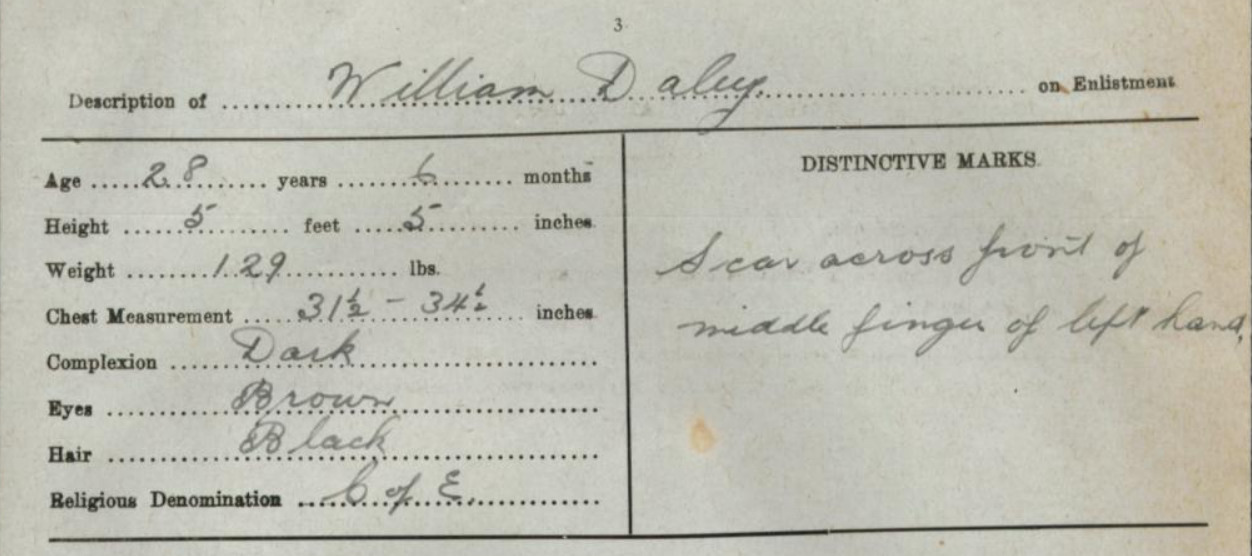 3
Description of William Daley. on Enlistment
Age 28 years 6 months
Height 5 feet 5 inches.
Weight 129 lbs.
Chest Measurement 31½ - 34½ inches
Complexion Dark
Eyes Brown
Hair Black
Religious Denomination C of E.
DISTINCTIVE MARKS.
Scar across front of
middle finger of left hand,